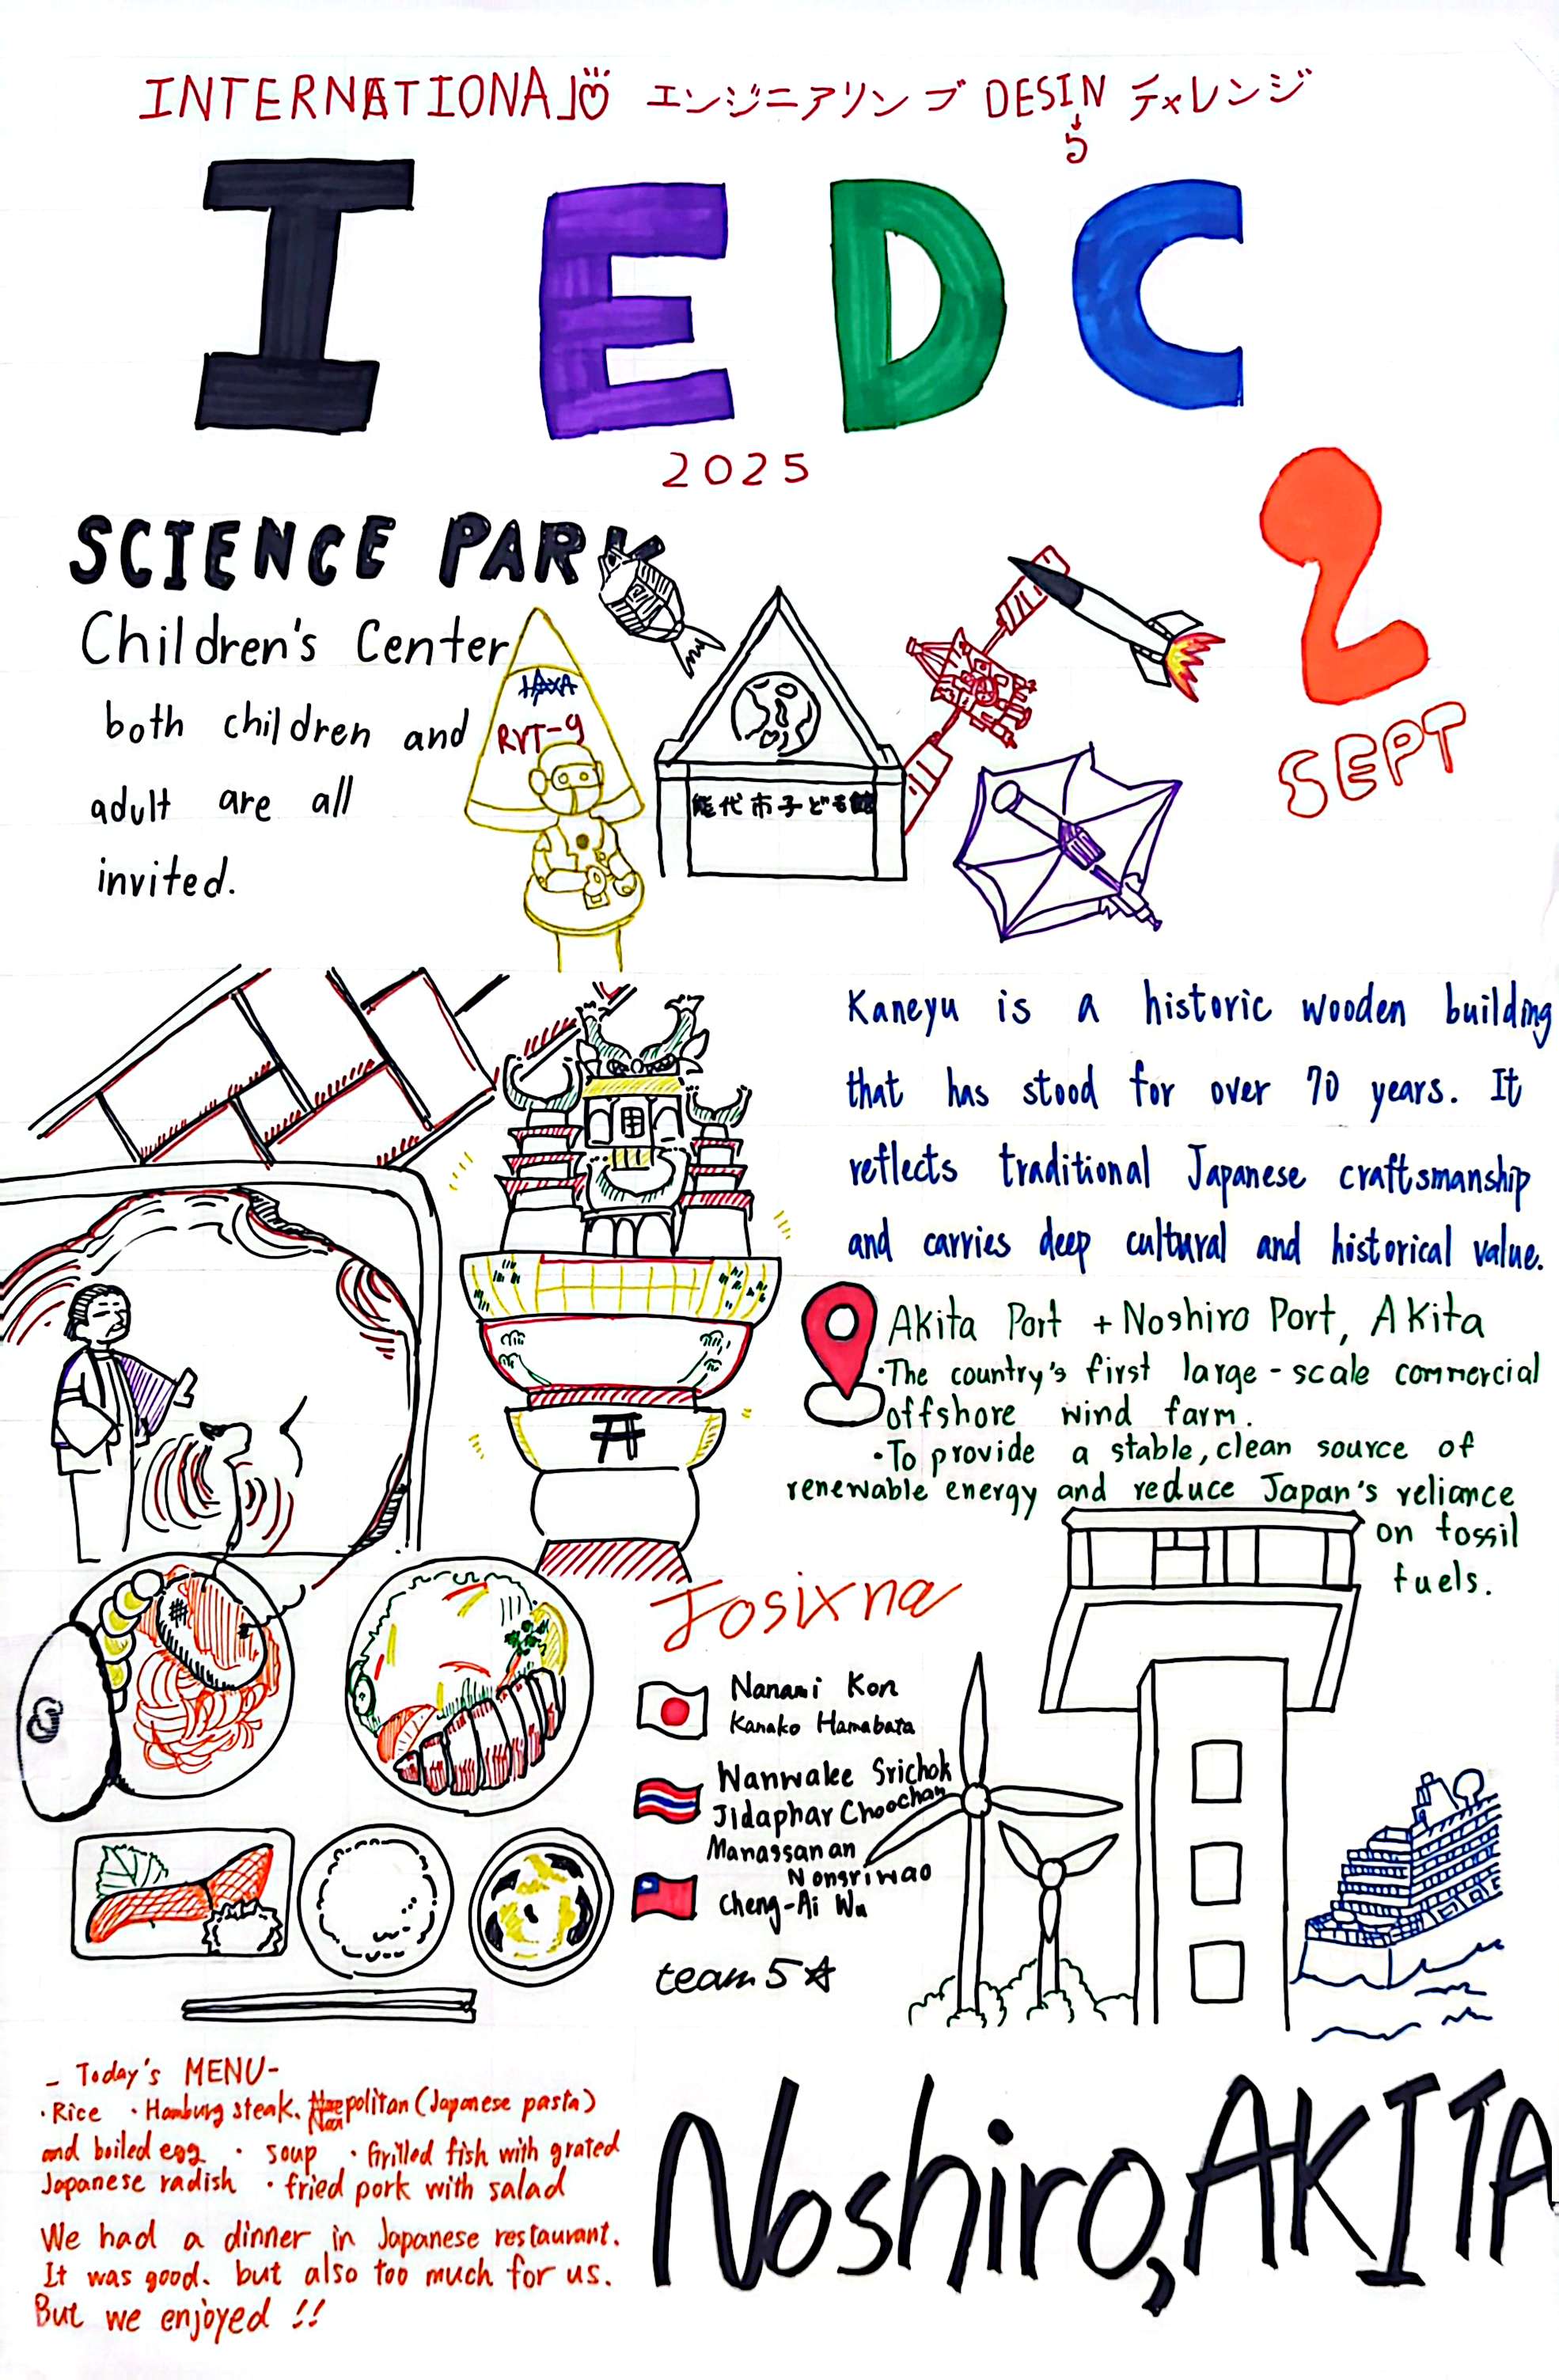 INTERNATIONAL エンジニアリング DESIN チャレンジ
G
IEDC
2025
2
SEPT
SCIENCE PARK
Children's Center
both children and
adult are all
invited.
JAXA
RVT-9
能代市子ども館
Kaneyu is a historic wooden building
that has stood for over 70 years. It
reflects traditional Japanese craftsmanship
and carries deep cultural and historical value.
Akita Port + Noshiro Port, Akita
・The country's first large-scale commercial
offshore wind farm.
・To provide a stable, clean source of
renewable energy and reduce Japan's reliance
on fossil
fuels.
Josixna
Nanami Kon
Kanako Hamabata
Wanwalee Srichok
Jidaphar Choochan
Manassanan
Nonsriwao
Cheng-Ai Wu
team 5☆
- Today's MENU-
・Rice ・Hamburg steak. politan (Japanese pasta)
and boiled egg ・ soup ・Grilled fish with grated
Japanese radish ・fried pork with salad
We had a dinner in Japanese restaurant.
It was good. but also too much for us.
But we enjoyed !!
Noshiro, AKITA